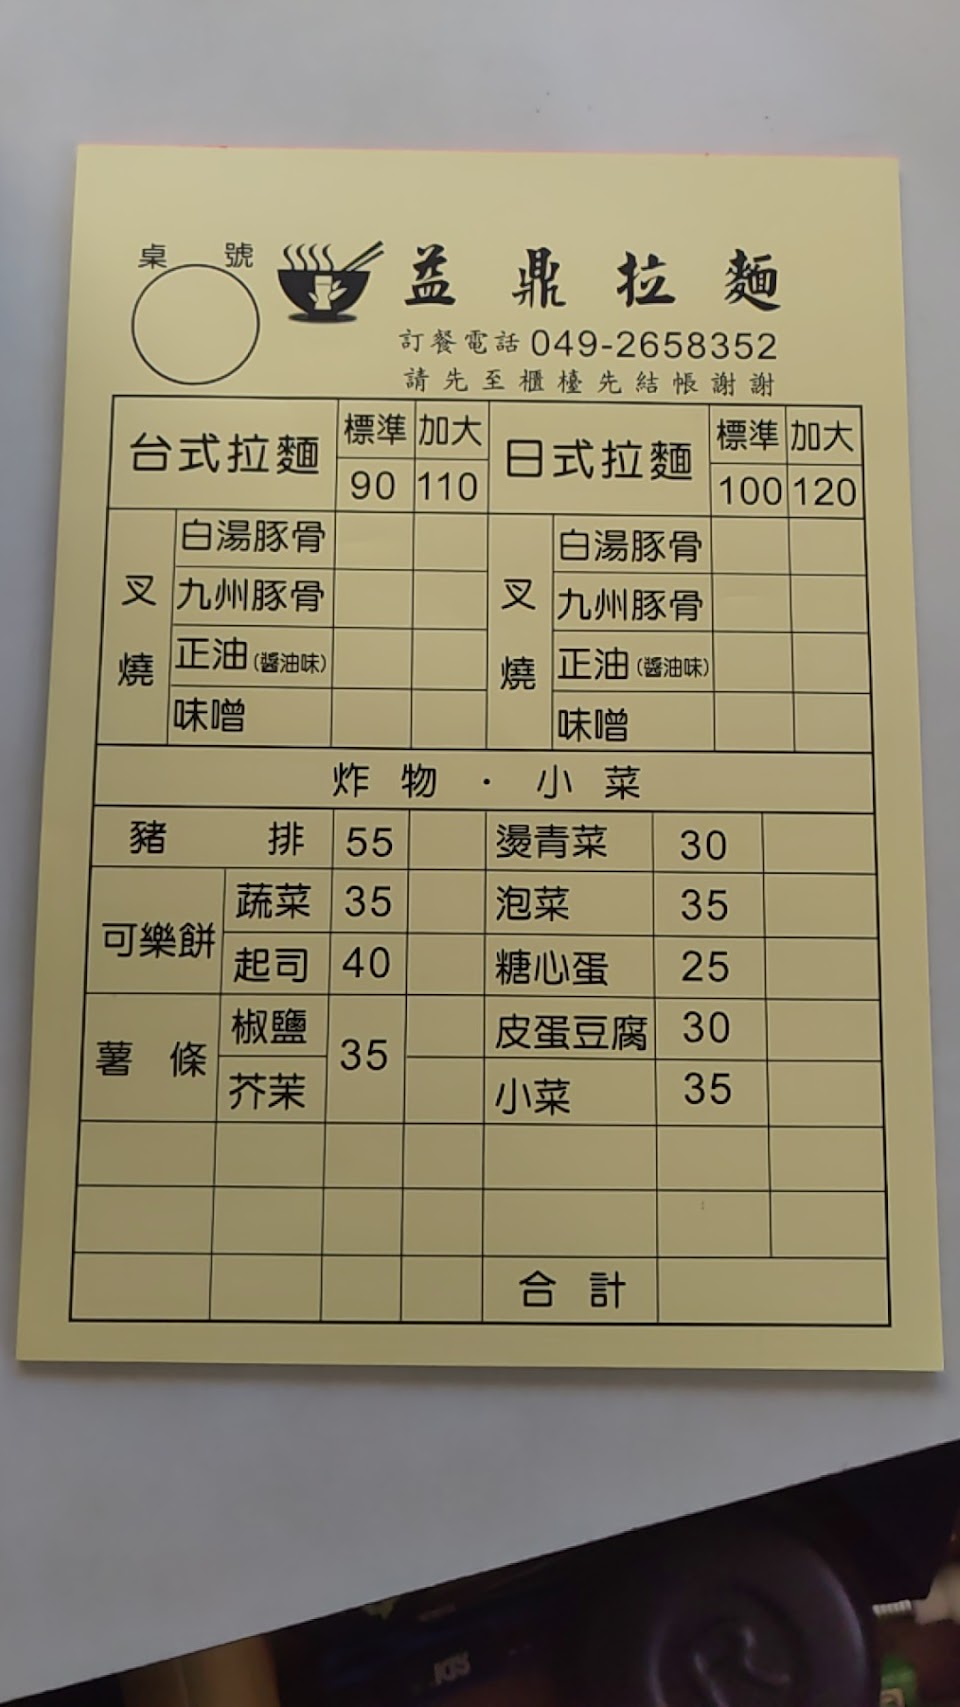 桌 號
益鼎拉麵
訂餐電話 049-2658352
請先至櫃檯先結帳謝謝
台式拉麵 標準 加大 日式拉麵 標準 加大
90 110 100 120
叉燒 白湯豚骨 叉燒 白湯豚骨
九州豚骨 九州豚骨
正油(醬油味) 正油(醬油味)
味噌 味噌
炸物・小菜
豬排 55 燙青菜 30
可樂餅 蔬菜 35 泡菜 35
起司 40 糖心蛋 25
薯條 椒鹽 35 皮蛋豆腐 30
芥茉 小菜 35
合計